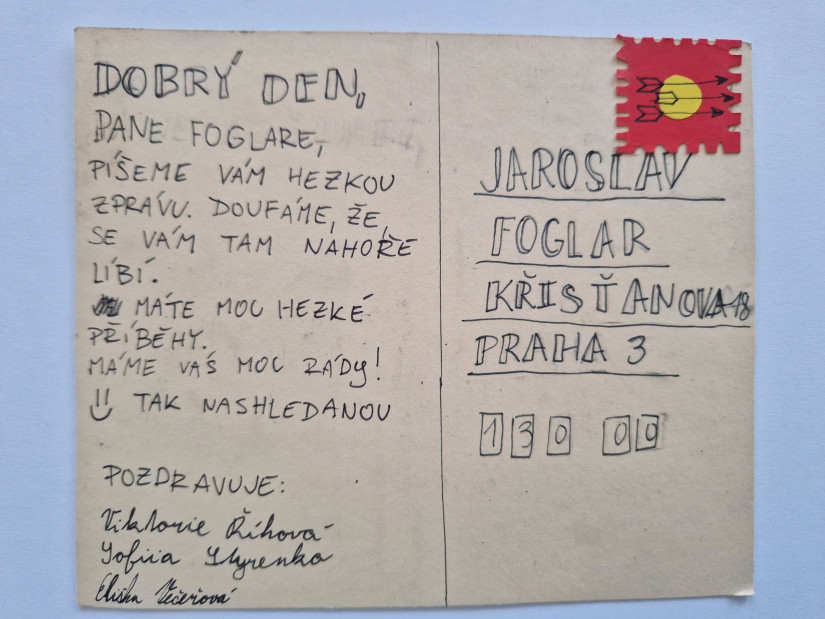 DOBRÝ DEN,
PANE FOGLARE,
PÍŠEME VÁM HEZKOU
ZPRÁVU. DOUFÁME, ŽE,
SE VÁM TAM NAHOŘE
LÍBÍ.
MÁTE MOC HEZKÉ
PŘÍBĚHY.
MÁME VÁS MOC RÁDY!
TAK NASHLEDANOU
POZDRAVUJE:
Viktorie Říhová
Sofiia Styrenko
Eliška Večeřová
JAROSLAV
FOGLAR
KŘIŠŤANOVA 18
PRAHA 3
130 00